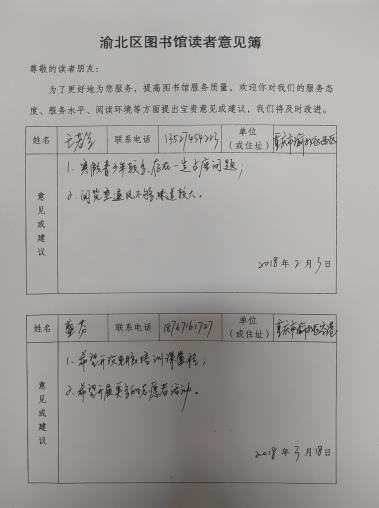 渝北区图书馆读者意见簿
尊敬的读者朋友：
为了更好地为您服务，提高图书馆服务质量，欢迎你对我们的服务态
度、服务水平、阅读环境等方面提出宝贵意见或建议，我们将及时改进。
姓名 联系电话 13527454223 单位（或住址） 重庆市渝北区
意见或建议
1.寒假青少年较多，存在一些占座问题；
2.阅览室通风不够味道较大。
2018年2月3日
姓名 联系电话 18767161727 单位（或住址） 重庆市渝北区
意见或建议
1.希望开设更多培训课程；
2.希望开展更多的志愿者活动。
2018年3月18日